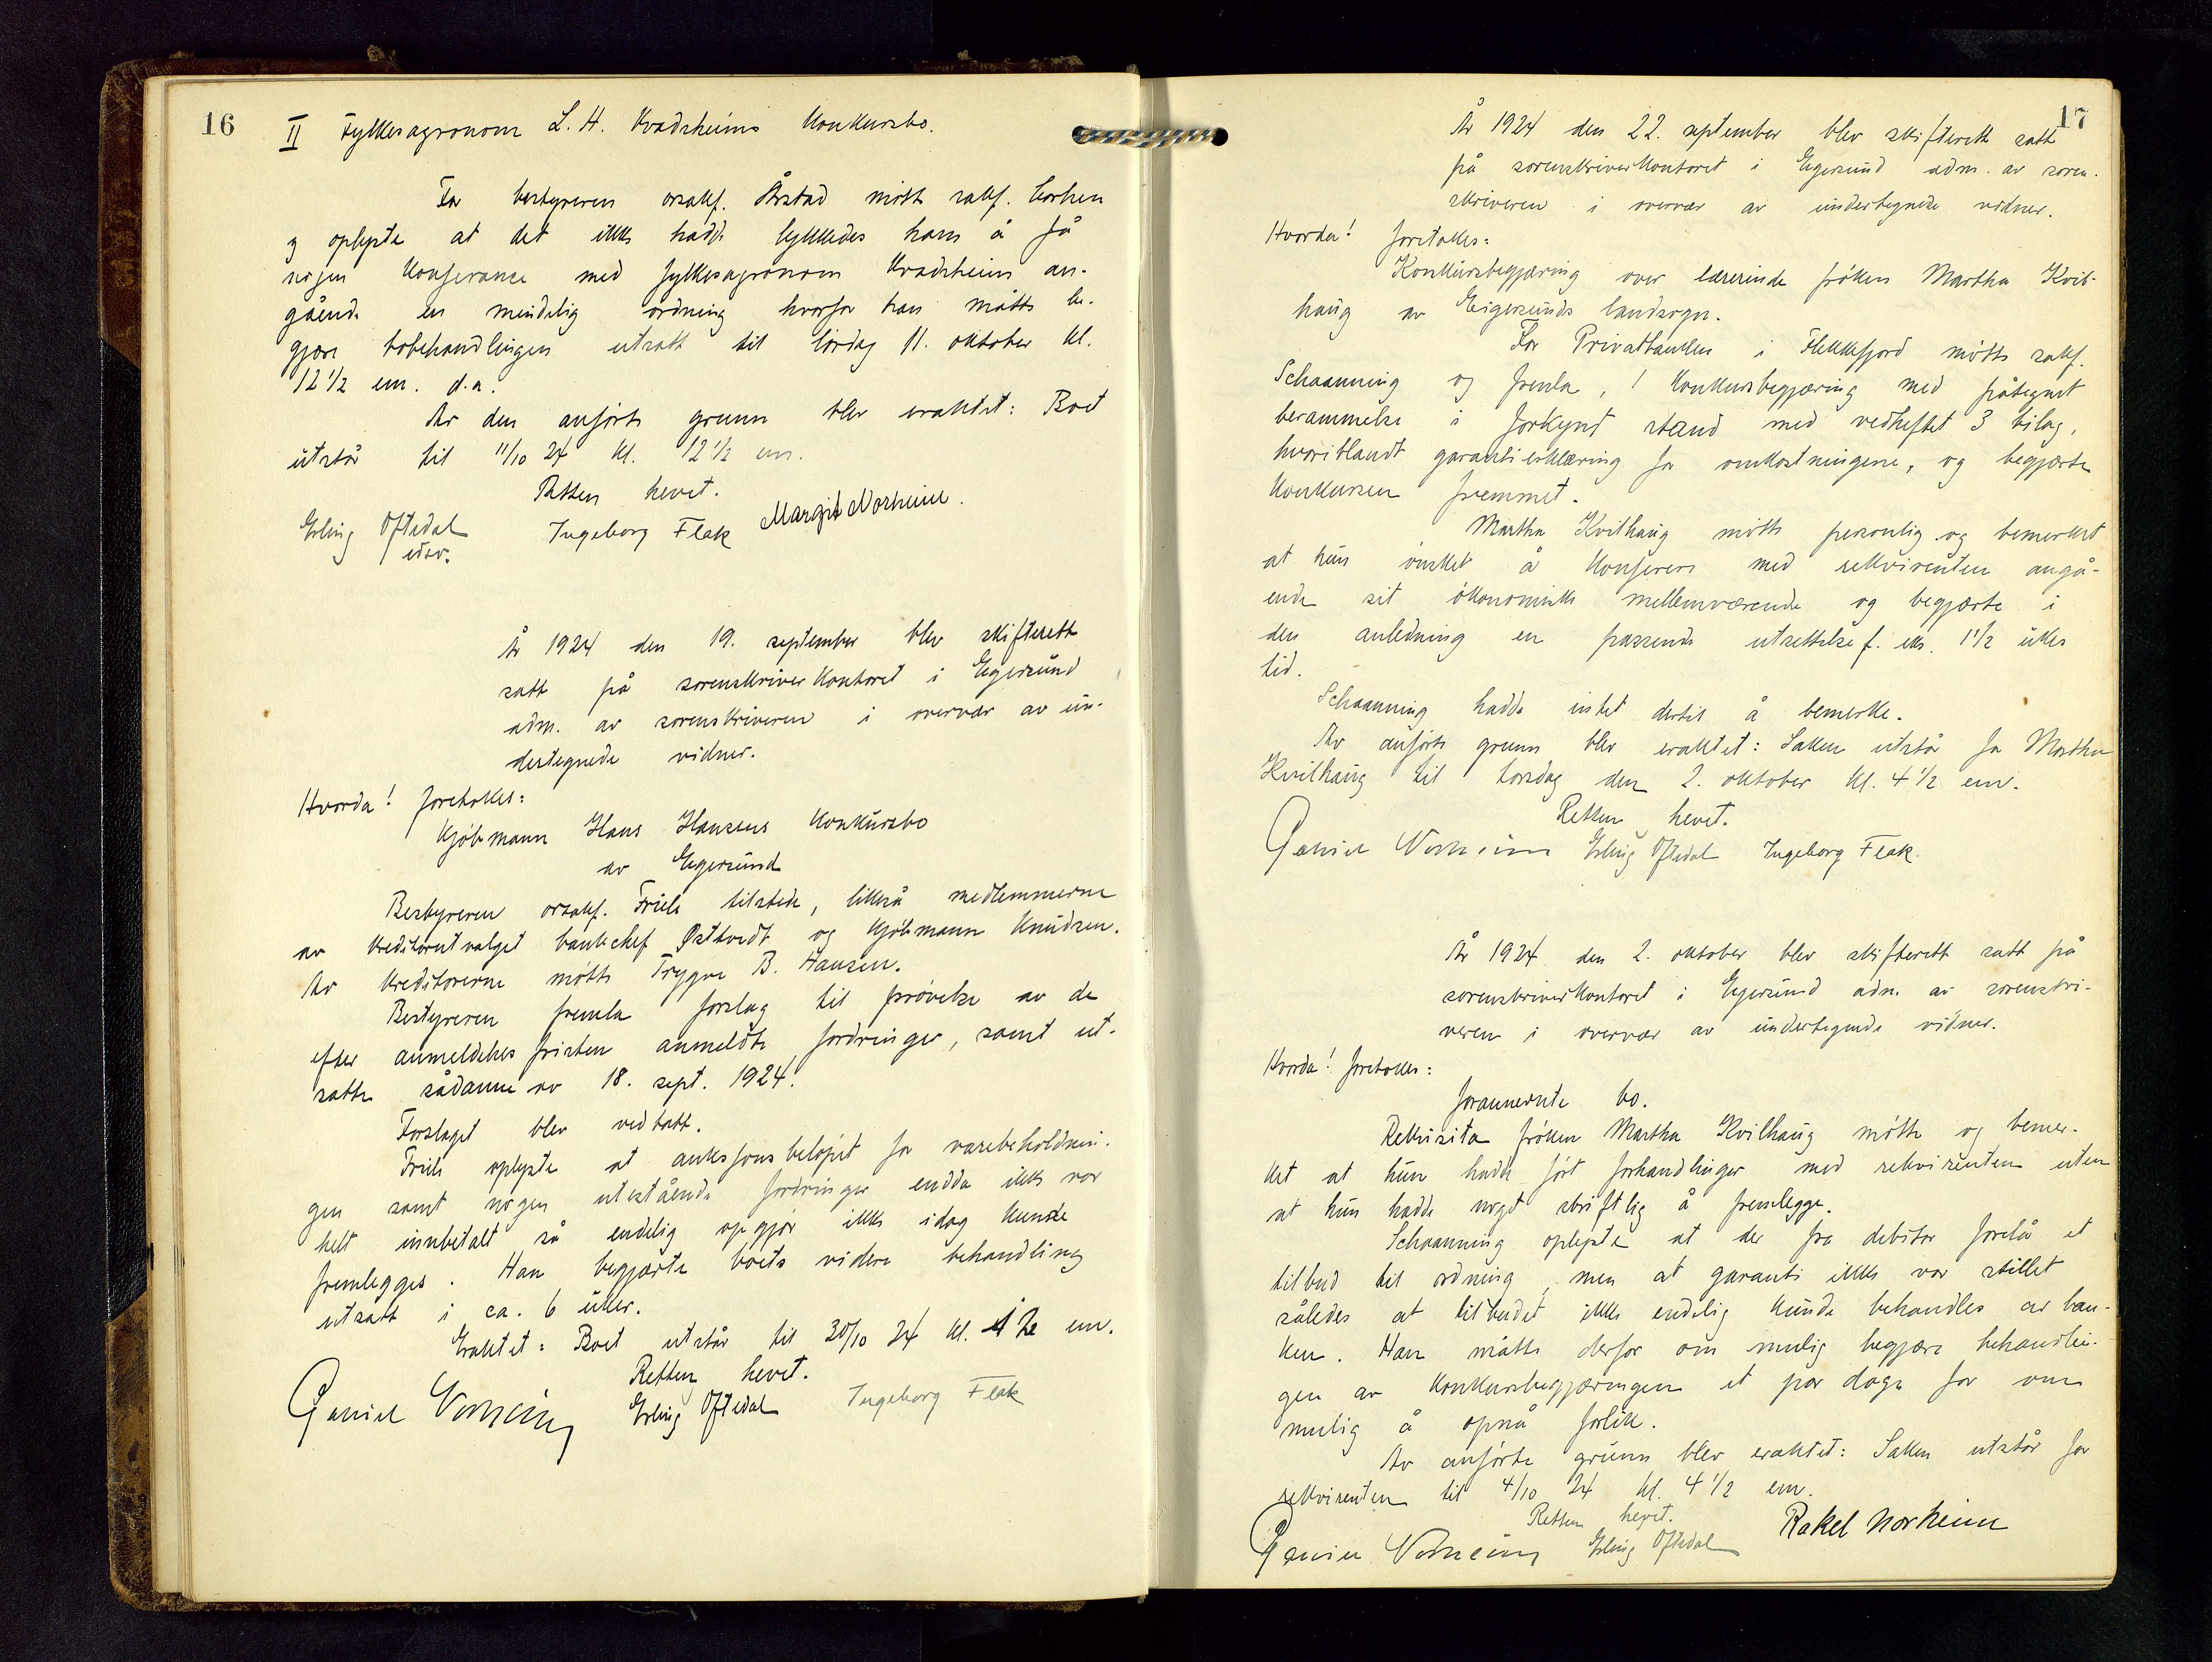 16
II Fylkesagronom L. H. Kvadsheims konkursbo.
For bestyreren orsakf. Årstad møtte sakf.
og oplyste at det ikke hadde lykkedes ham å få
nogen konferance med fylkesagronom Kvadsheim an-
gående en mindelig ordning hvorfor han måtte be-
gjære bobehandlingen utsatt til lørdag 11. oktober kl.
12 1/2 em. d.a.
Av den anførte grunn blev eraktet: Boet
utstår til 11/10 24 kl. 12 1/2 em.
Retten hevet.
Erling Oftedal Ingeborg Fleak Margit Norheim.
edsv.
År 1924 den 19. september blev skifterett
satt på sorenskriverkontoret i Egersund
adm. av sorenskriveren i overvær av un-
dertegnede vidner.
Hvorda! foretokes:
Kjøbmann Hans Hansens konkursbo
av Egersund
Bestyreren orsakf. Friele tilstede, likeså medlemmerne
av kreditorutvalget bankchef Østhvedt og kjøbmann Knudsen.
Av kreditorerne møtte Trygve B. Hansen.
Bestyreren fremla forslag til prøvelse av de
efter anmeldelsesfristen anmeldte fordringer, samt ut-
satte sådanne av 18. sept. 1924.
Forslaget blev vedtatt.
Friele oplyste at auksjonsbeløpet for varebeholdnin-
gen samt nogen utestående fordringer endda ikke var
helt innbetalt så endelig opgjør ikke idag kunde
fremlegges. Han begjærte boets videre behandling
utsatt i ca. 6 uker.
Eraktet: Boet utstår til 30/10 24 kl. 12 em.
Retten hevet.
Gabriel Norheim Erling Oftedal Ingeborg Fleak
17
År 1924 den 22. september blev skifterett satt
på sorenskriverkontoret i Egersund adm. av soren-
skriveren i overvær av undertegnede vidner.
Hvorda! foretokes:
Konkursbegjæring over lærerinde frøken Martha Kvil-
haug av Eigersunds landsogn.
For Privatbanken i Flekkefjord møtte sakf.
Schaanning og fremla, 1 konkursbegjæring med påtegnet
berammelse i forkynt stand med vedheftet 3 bilag,
hvoriblandt garantierklæring for omkostningene, og begjærte
konkursen fremmet.
Martha Kvilhaug møtte personlig og bemerket
at hun ønsket å konferere med rekvirenten angå-
ende sit økonomiske mellemværende og begjærte i
den anledning en passende utsettelse f. eks. 1 1/2 ukes
tid.
Schaanning hadde intet dertil å bemerke.
Av anførte grunn blev eraktet: Saken utstår for Martha
Kvilhaug til torsdag den 2. oktober kl. 4 1/2 em.
Retten hevet.
Gabriel Norheim Erling Oftedal Ingeborg Fleak
År 1924 den 2. oktober blev skifterett satt på
sorenskriverkontoret i Egersund adm. av sorenskri-
veren i overvær av undertegnede vidner.
Hvorda! foretokes:
forannevnte bo.
Rekvisita frøken Martha Kvilhaug møtte og bemer-
ket at hun hadde ført forhandlinger med rekvirenten uten
at hun hadde noget skriftlig å fremlegge.
Schaanning oplyste at der fra debitor forelå et
tilbud til ordning, men at garanti ikke var stillet
således at tilbudet ikke endelig kunde behandles av ban-
ken. Han måtte derfor om mulig begjære behandlin-
gen av konkursbegjæringen et par dage for om
mulig å opnå forlik.
Av anførte grunn blev eraktet: Saken utstår for
rekvirenten til 4/10 24 kl. 4 1/2 em.
Retten hevet.
Gabriel Norheim Erling Oftedal Rakel Norheim